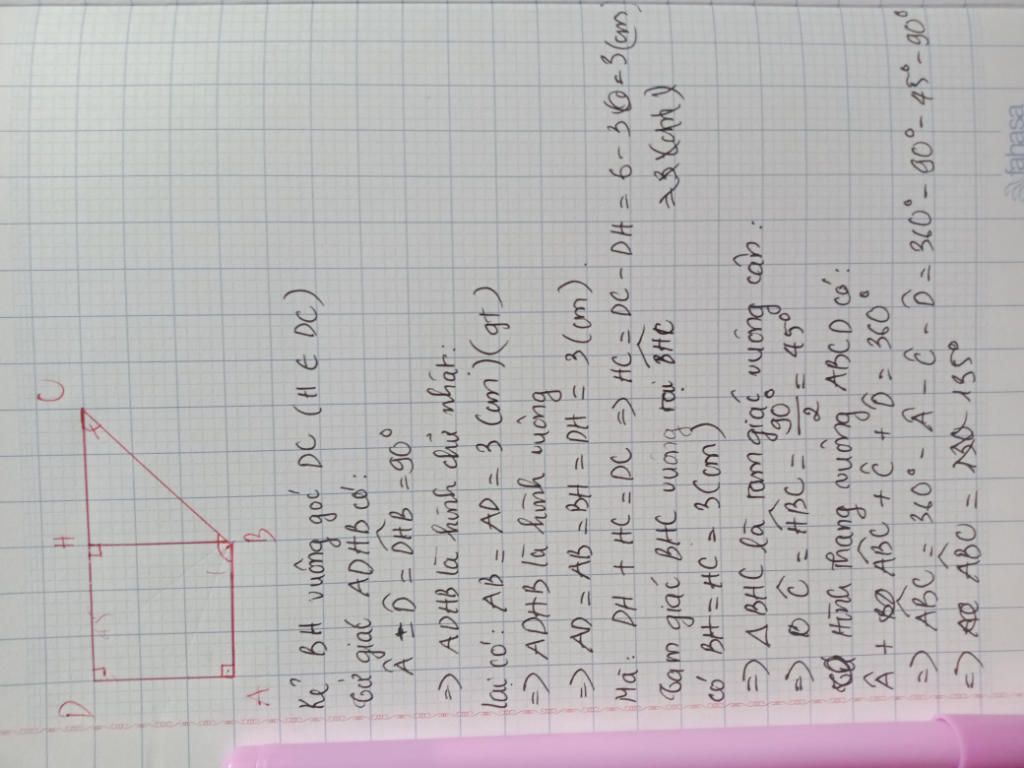 D H C
A B
Kẻ BH vuông góc DC (H ∈ DC)
Tứ giác ADHB có:
Â = D̂ = DĤB = 90°
=> ADHB là hình chữ nhật:
Lại có: AB = AD = 3 (cm) (gt)
=> ADHB là hình vuông
=> AD = AB = BH = DH = 3 (cm).
Mà: DH + HC = DC => HC = DC - DH = 6 - 3 = 3 (cm)
Tam giác BHC vuông tại BĤC
có BH = HC = 3 (cm)
=> Δ BHC là tam giác vuông cân:
=> Ĉ = HB̂C = 90°/2 = 45°
Hình thang vuông ABCD có:
Â + AB̂C + Ĉ + D̂ = 360°
=> AB̂C = 360° - Â - Ĉ - D̂ = 360° - 90° - 45° - 90°
=> AB̂C = 135°
fahasa